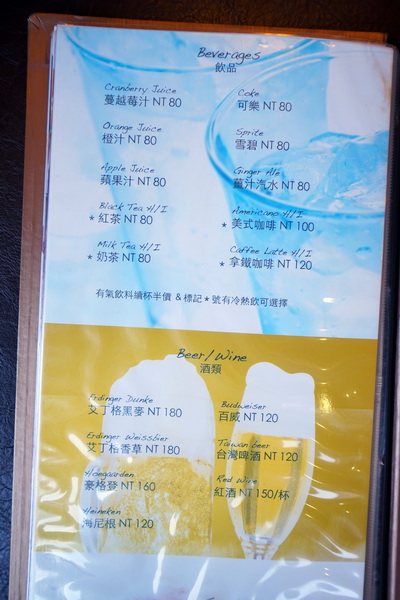 Beverages
飲品
Cranberry Juice
蔓越莓汁 NT 80
Orange Juice
橙汁 NT 80
Apple Juice
蘋果汁 NT 80
Black Tea H/I
★ 紅茶 NT 80
Milk Tea H/I
★ 奶茶 NT 80
Coke
可樂 NT 80
Sprite
雪碧 NT 80
Ginger Ale
薑汁汽水 NT 80
Americano H/I
★ 美式咖啡 NT 100
Caffee Latte H/I
★ 拿鐵咖啡 NT 120
有氣飲料續杯半價 & 標記★號有冷熱飲可選擇
Beer/Wine
酒類
Erdinger Dunke
艾丁格黑麥 NT 180
Erdinger Weissbier
艾丁格香草 NT 180
Hoegaarden
豪格登 NT 160
Heineken
海尼根 NT 120
Budweiser
百威 NT 120
Taiwan beer
台灣啤酒 NT 120
Red Wine
紅酒 NT 150/杯